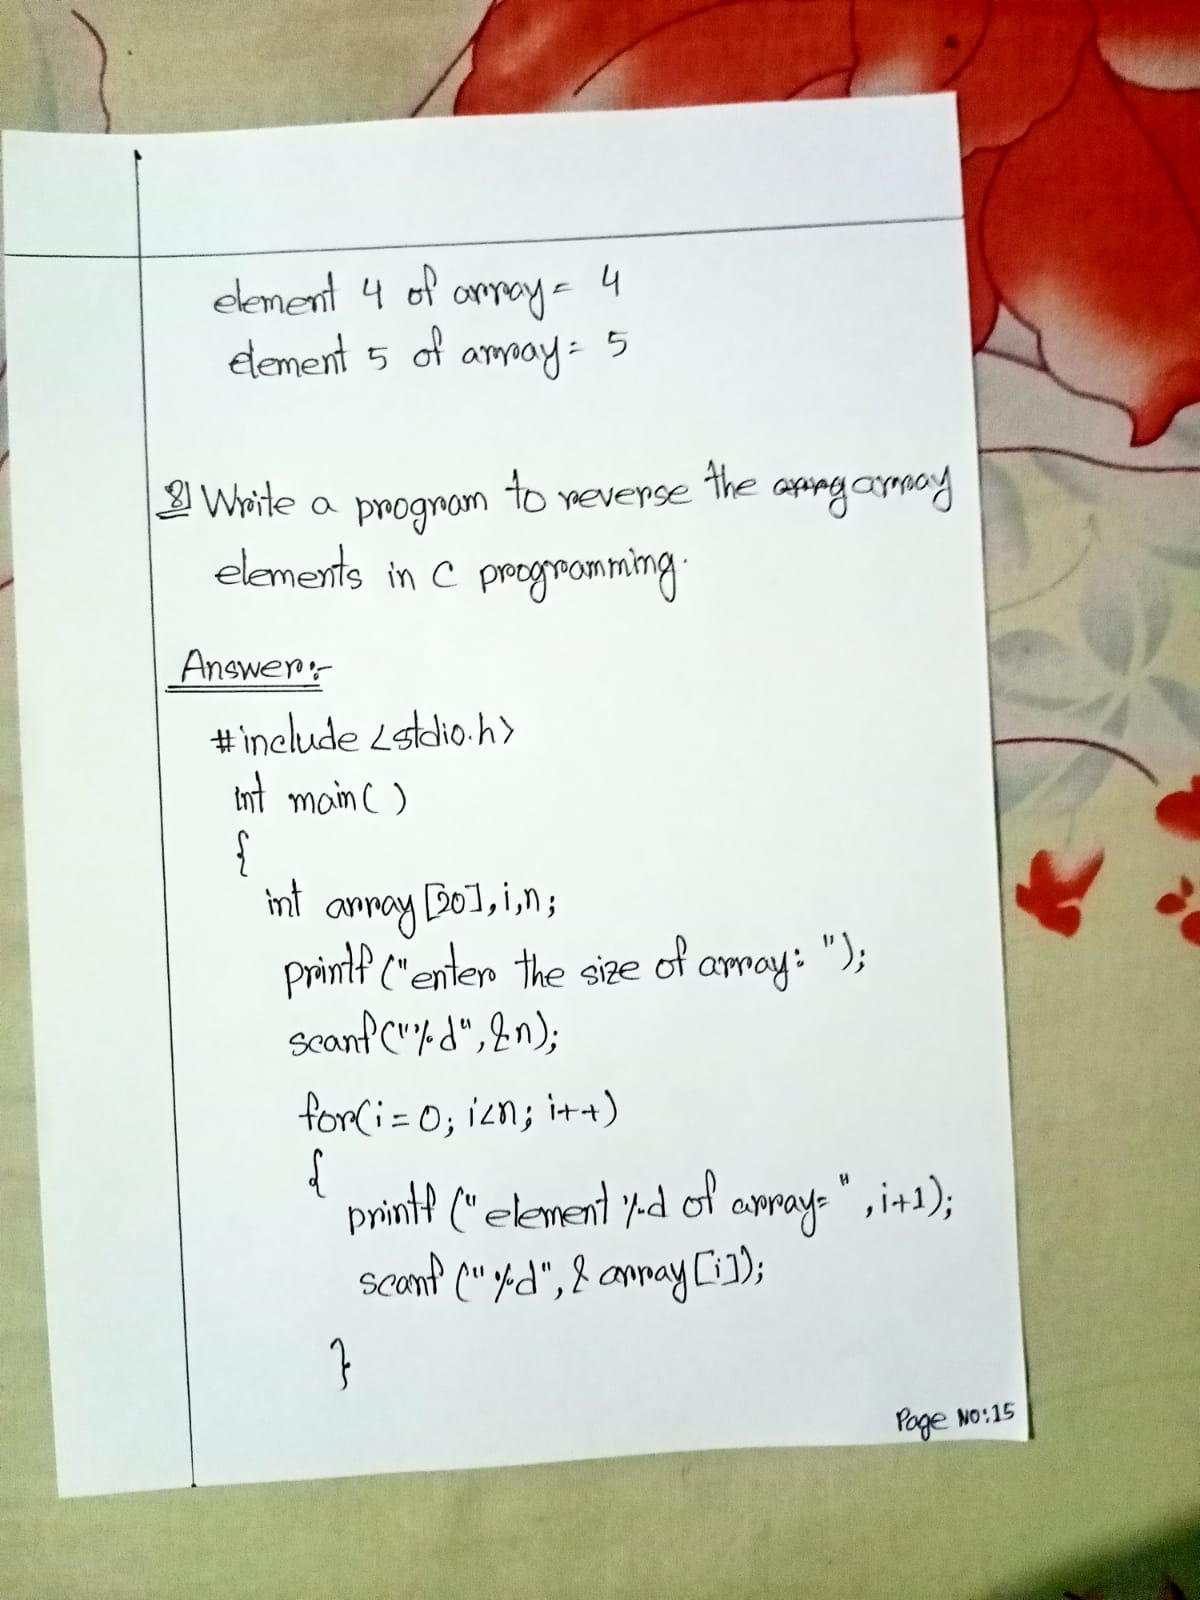 element 4 of array = 4
element 5 of array = 5
8) Write a program to reverse the array
elements in C programming.
Answer:-
#include <stdio.h>
int main( )
{
int array [20], i,n;
printf ("enter the size of array: ");
scanf("%d", &n);
for(i = 0; i<n; i++)
{
printf (" element %d of array= ", i+1);
scanf (" %d", & array [i]);
}
Page No:15